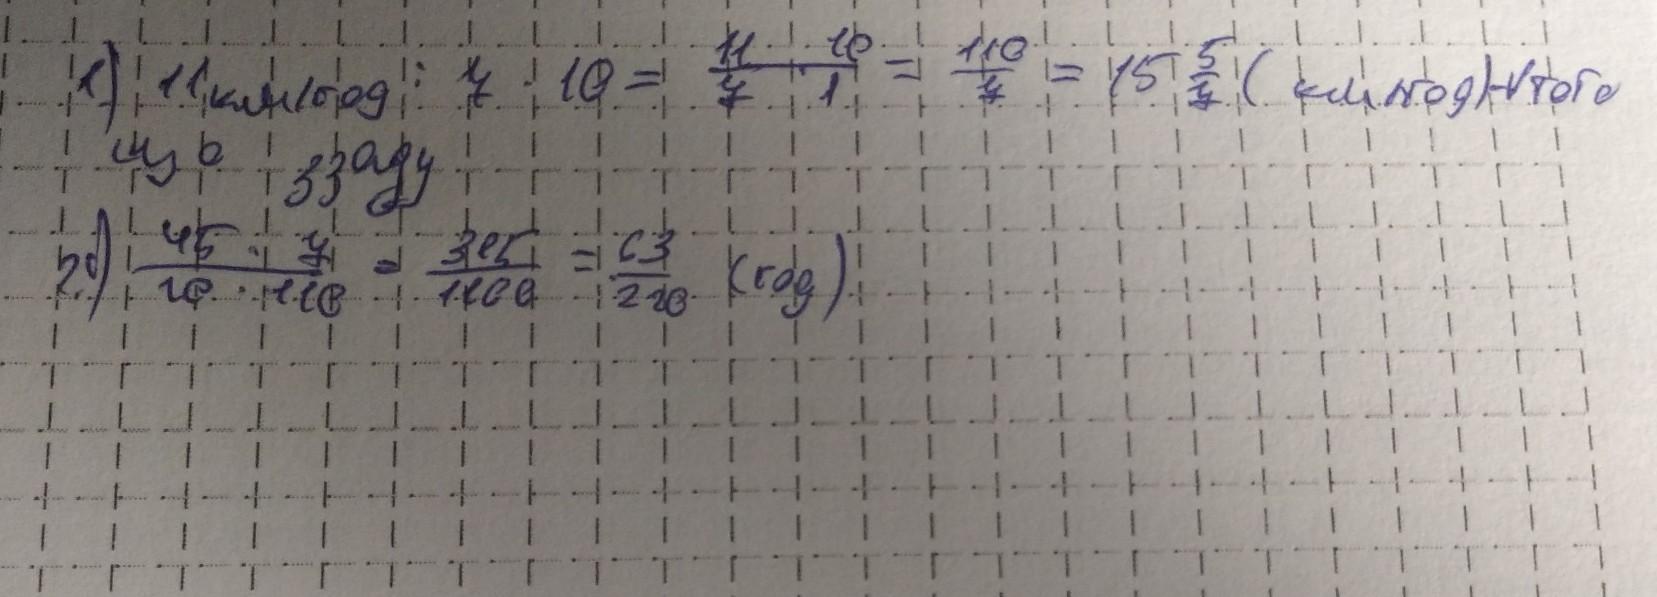 1) 11 км/год : 7 · 10 = 11/7 · 10/1 = 110/7 = 15 5/7 ( км/год) - V того
що ззаду
2) 45 · 7 / 10 · 110 = 315/1100 = 63/220 (год)